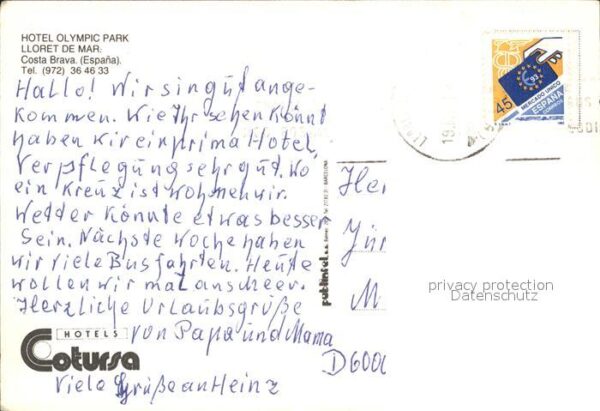 HOTEL OLYMPIC PARK
LLORET DE MAR.
Costa Brava. (España).
Tel. (972) 36 46 33
Hallo! Wir sin gut ange-
kommen. Wie Ihr sehen könnt
haben wir ein prima Hotel,
Verpflegung sehr gut. Wo
ein Kreuz ist wohnen wir.
Wetter könnte etwas besser
sein. Nächste Woche haben
wir viele Busfahrten. Heute
wollen wir mal
Herzliche Urlaubsgrüße
von Papa und Mama
Viele Grüße an Heinz
HOTELS
Cotursa
publintel s.a.
BARCELONA
45
MERCADO UNICO
ESPAÑA
93
Her
Jür
M
D6000
privacy protection
Datenschutz